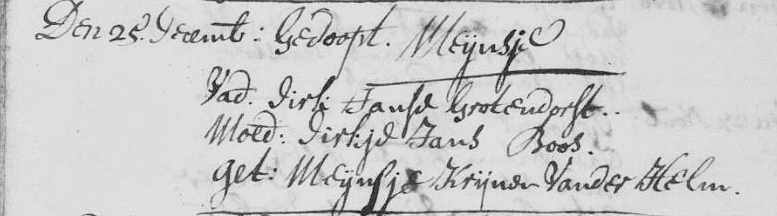 Den 25. decemb: Gedoopt. Meijnsje
Vad. dirk Janse Grotendorst..
Moed: dirkje Jans Roos.
get: Meijnsje Krijnen Vander Helm.